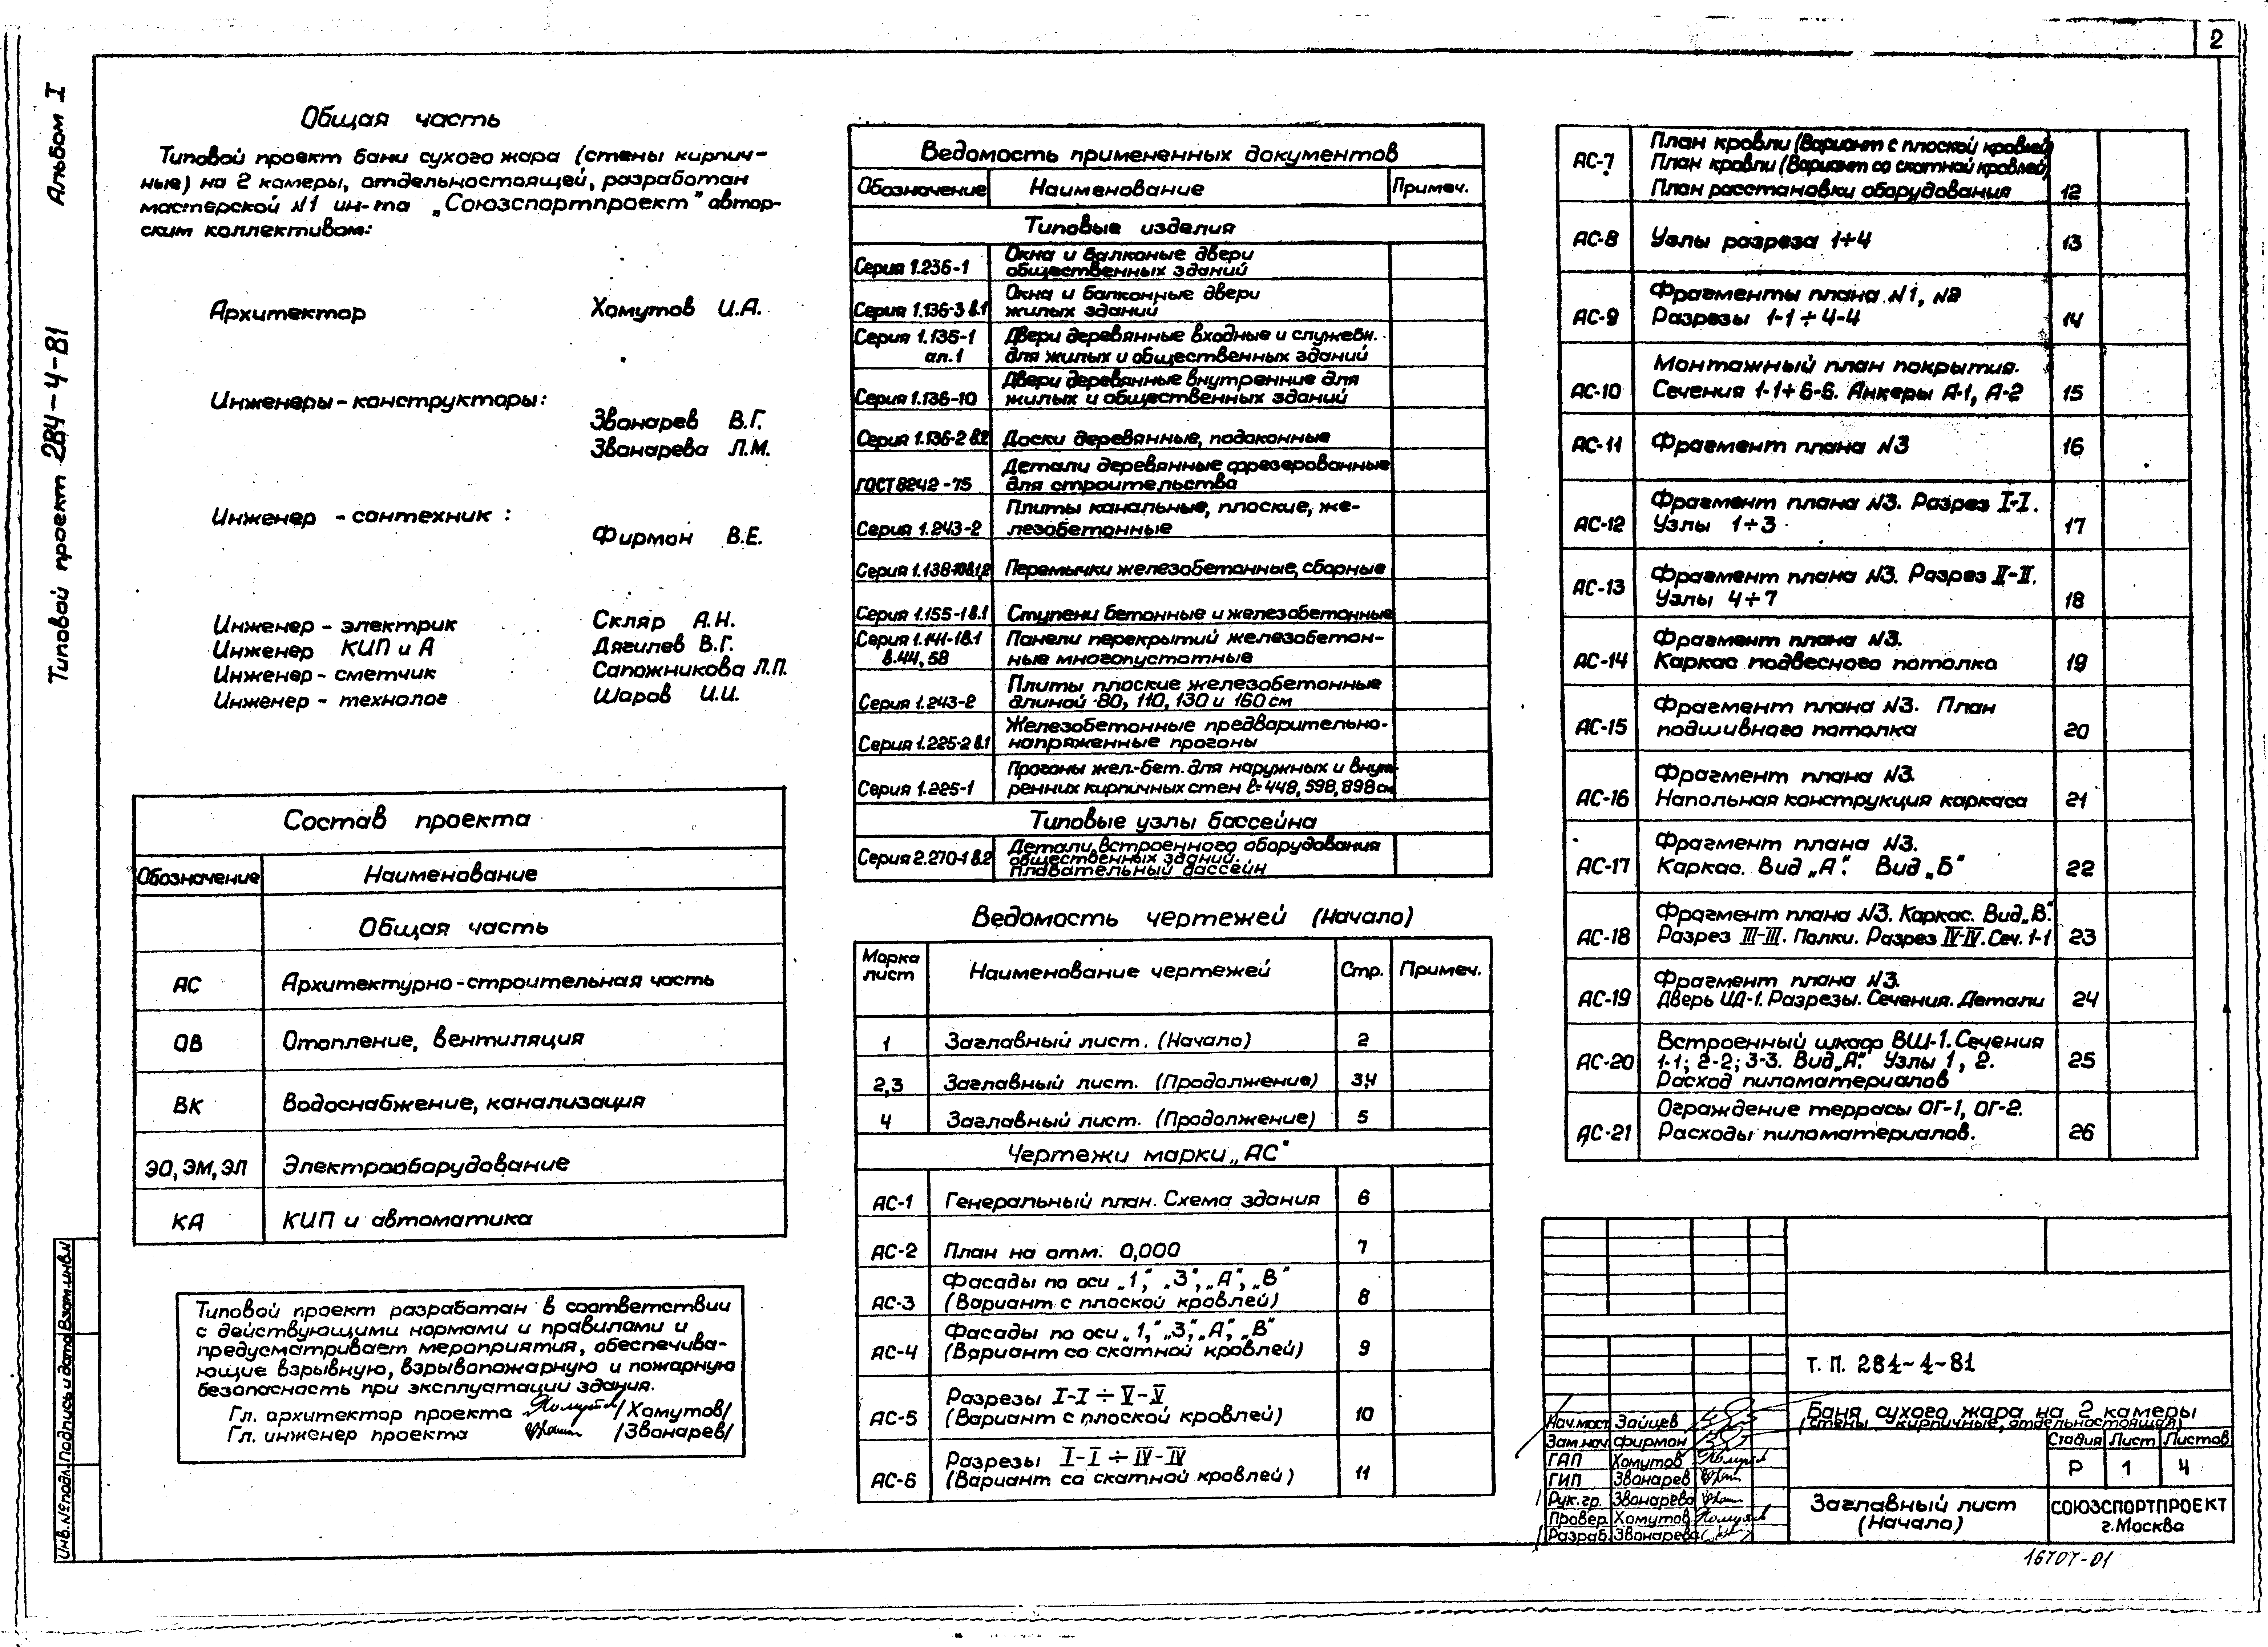 2
Альбом I
Типовой проект 284-4-81
Общая часть
Типовой проект бани сухого жара (стены кирпич-
ные) на 2 камеры, отдельностоящей, разработан
мастерской N1 ин-та „Союзспортпроект" автор-
ским коллективом:
Архитектор Хомутов И.А.
Инженеры-конструкторы:
Звонарев В.Г.
Звонарева Л.М.
Инженер - сантехник :
Фирман В.Е.
Инженер - электрик Скляр А.Н.
Инженер КИП и А Дягилев В.Г.
Инженер - сметчик Сапожникова Л.П.
Инженер - технолог Шаров И.И.
Состав проекта
Обозначение Наименование
Общая часть
АС Архитектурно-строительная часть
ОВ Отопление, вентиляция
ВК Водоснабжение, канализация
ЭО, ЭМ, ЭЛ Электрооборудование
КА КИП и автоматика
Типовой проект разработан в соответствии
с действующими нормами и правилами и
предусматривает мероприятия, обеспечива-
ющие взрывную, взрывопожарную и пожарную
безопасность при эксплуатации здания.
Гл. архитектор проекта /Хомутов/
Гл. инженер проекта /Звонарев/
Инв.№подл. Подпись и дата Взам.инв.N
Ведомость примененных документов
Обозначение Наименование Примеч.
Типовые изделия
Серия 1.236-1 Окна и балконые двери
общественных зданий
Серия 1.136-3 в.1 Окна и балконные двери
жилых зданий
Серия 1.135-1 Двери деревянные входные и служебн.
ал.1 для жилых и общественных зданий
Серия 1.136-10 Двери деревянные внутренние для
жилых и общественных зданий
Серия 1.136-2 в.2 Доски деревянные, подоконные
ГОСТ 8242-75 Детали деревянные фрезерованные
для строительства
Серия 1.243-2 Плиты канальные, плоские, же-
лезобетонные
Серия 1.138-10в.1,2 Перемычки железобетонные, сборные
Серия 1.155-1 в.1 Ступени бетонные и железобетонные
Серия 1.141-1в.1 Панели перекрытий железобетон-
в.44,58 ные многопустотные
Серия 1.243-2 Плиты плоские железобетонные
длиной 80, 110, 130 и 160 см
Серия 1.225-2 в.1 Железобетонные предварительно-
напряженные прогоны
Серия 1.225-1 Прогоны жел.-бет. для наружных и внут-
ренних кирпичных стен ℓ=448, 598, 898 см
Типовые узлы бассейна
Серия 2.270-1 в.2 Детали встроенного оборудования
общественных зданий.
Плавательный бассейн
Ведомость чертежей (Начало)
Марка
лист Наименование чертежей Стр. Примеч.
1 Заглавный лист. (Начало) 2
2,3 Заглавный лист. (Продолжение) 3,4
4 Заглавный лист. (Продолжение) 5
Чертежи марки „АС"
АС-1 Генеральный план. Схема здания 6
АС-2 План на отм. 0,000 7
АС-3 Фасады по оси „1", „3", „А", „В"
(Вариант с плоской кровлей) 8
АС-4 Фасады по оси „1", „3", „А", „В"
(Вариант со скатной кровлей) 9
АС-5 Разрезы I-I ÷ V-V
(Вариант с плоской кровлей) 10
АС-6 Разрезы I-I ÷ IV-IV
(Вариант со скатной кровлей) 11
АС-7 План кровли (Вариант с плоской кровлей)
План кровли (Вариант со скатной кровлей)
План расстановки оборудования 12
АС-8 Узлы разреза 1÷4 13
АС-9 Фрагменты плана N1, N2
Разрезы 1-1 ÷ 4-4 14
АС-10 Монтажный план покрытия.
Сечения 1-1÷6-6. Анкеры А-1, А-2 15
АС-11 Фрагмент плана N3 16
АС-12 Фрагмент плана N3. Разрез I-I.
Узлы 1÷3 17
АС-13 Фрагмент плана N3. Разрез II-II.
Узлы 4÷7 18
АС-14 Фрагмент плана N3.
Каркас подвесного потолка 19
АС-15 Фрагмент плана N3. План
подшивного потолка 20
АС-16 Фрагмент плана N3.
Напольная конструкция каркаса 21
АС-17 Фрагмент плана N3.
Каркас. Вид „А". Вид „Б" 22
АС-18 Фрагмент плана N3. Каркас. Вид „В".
Разрез III-III. Полки. Разрез IV-IV. Сеч. 1-1 23
АС-19 Фрагмент плана N3.
Дверь ИД-1. Разрезы. Сечения. Детали 24
АС-20 Встроенный шкаф ВШ-1. Сечения
1-1; 2-2; 3-3. Вид „А". Узлы 1, 2.
Расход пиломатериалов 25
АС-21 Ограждение террасы ОГ-1, ОГ-2.
Расходы пиломатериалов. 26
Т. П. 284-4-81
Баня сухого жара на 2 камеры
(стены - кирпичные, отдельностоящая)
Нач.маст. Зайцев
Зам.нач. Фирман
ГАП Хомутов
ГИП Звонарев
Рук.гр. Звонарева
Провер. Хомутов
Разраб. Звонарева
Стадия Лист Листов
Р 1 4
Заглавный лист
(Начало)
СОЮЗСПОРТПРОЕКТ
г.Москва
16707-01